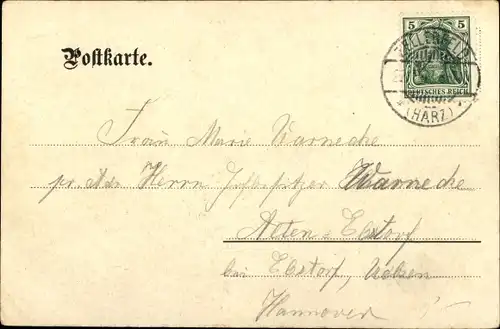 Postkarte.
5 5
DEUTSCHES REICH
ZELLERFELD
(HARZ)
Frau Marie Warnecke
pr. Adr Herrn Hofbesitzer Warnecke
Alten-Ebstorf
bei Ebstorf, Uelzen
Hannover